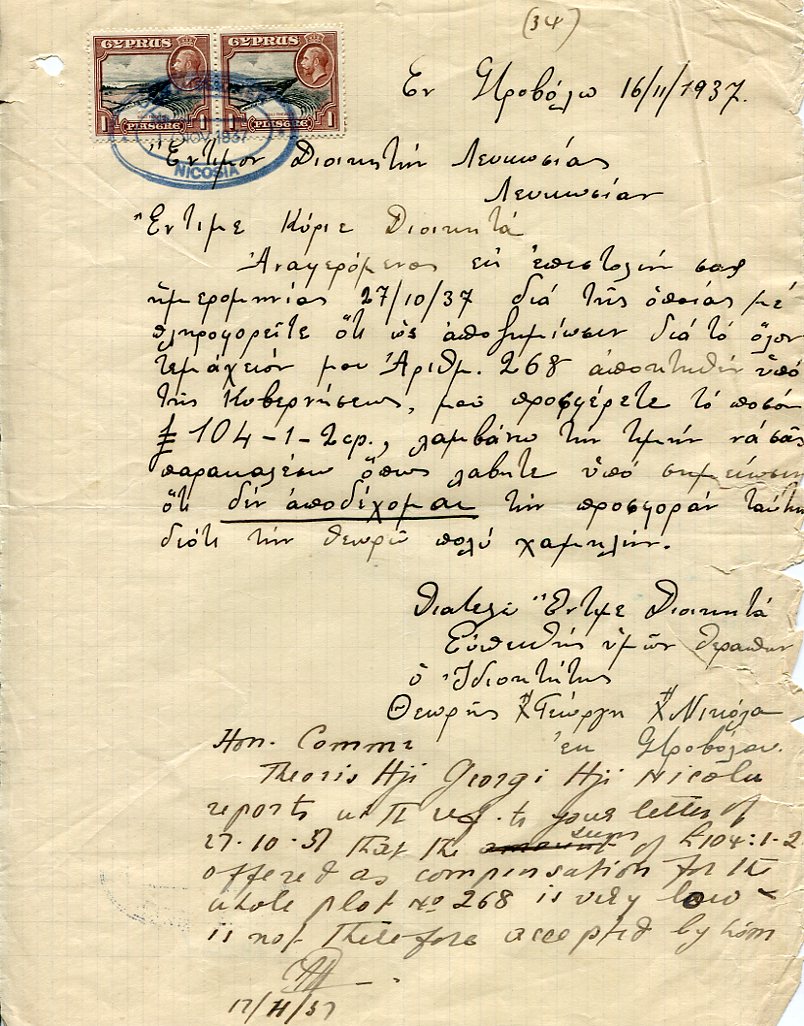 (34)
CYPRUS CYPRUS
1 PIASTRE 1 1 PIASTRE 1
NICOSIA
Ἐν Στροβόλῳ 16/11/1937.
Ἔντιμον Διοικητήν Λευκωσίας
Λευκωσίαν
Ἔντιμε Κύριε Διοικητά
Ἀναφερόμενος εἰς ἐπιστολήν σας
ἡμερομηνίας 27/10/37 διά τῆς ὁποίας μέ
πληροφορεῖτε ὅτι ὡς ἀποζημίωσιν διά τό ὅλον
τεμάχειόν μου Ἀριθμ. 268 ἀποκτηθέν ὑπό
τῆς Κυβερνήσεως, μου προσφέρετε τό ποσόν
£104-1-2γρ., λαμβάνω την τιμήν νά σᾶς
παρακαλέσω ὅπως λαβητε ὑπό σημείωσιν
ὅτι δέν ἀποδέχομαι την προσφοράν ταύτην
διότι την θεωρῶ πολύ χαμηλήν.
Διατελῶ Ἔντιμε Διοικητά
Εὐπειθής ὑμῶν θεράπων
ὁ Ἰδιοκτήτης
Θεωρῆς Χ"Γεώργη Χ"Νικόλα
ἐκ Στροβόλου.
Hon. Commr
Theoris Hji Georgi Hji Nicola
reports with ref. to your letter of
27.10.37 that the amount sum of £104:1-2
offered as compensation for the
whole plot No 268 is very low
is not therefore accepted by him
17/11/37